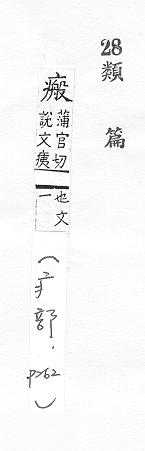 28類篇
瘢
蒲官切
說文痍
也文一
(疒部.
p262)